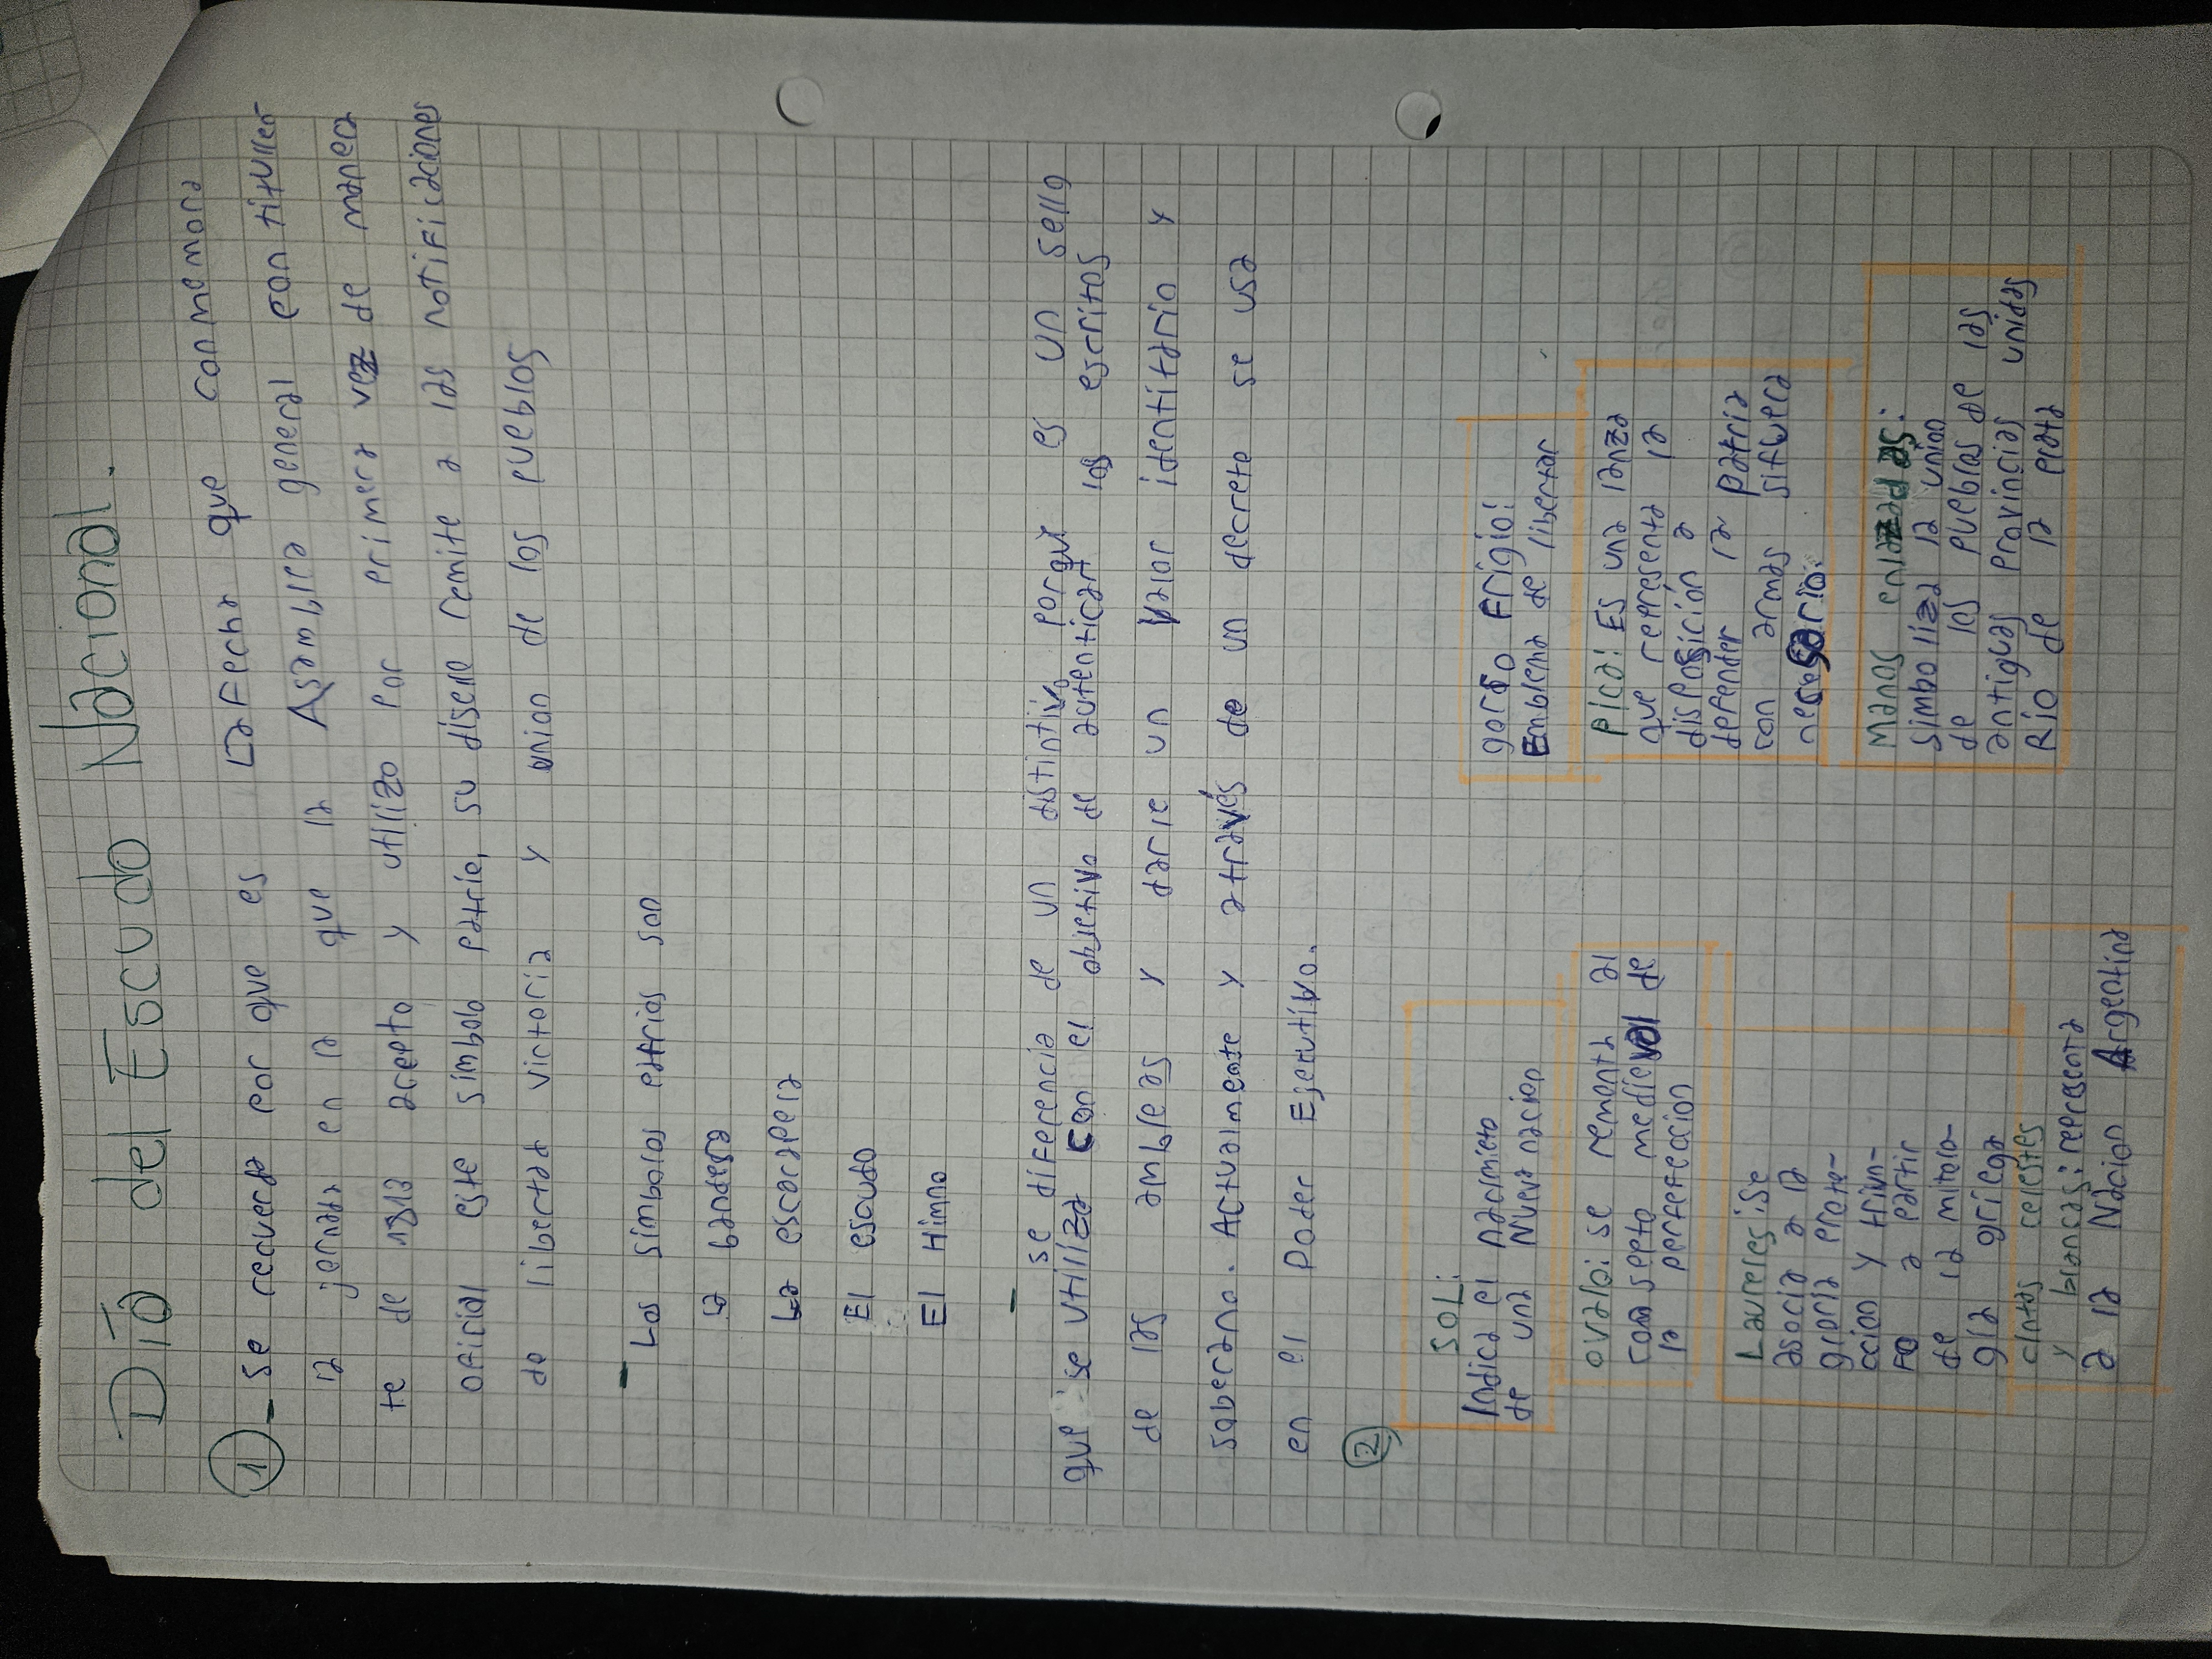 Día del Escudo Nacional.
1 - se recuerda por que es La Fecha que conmemora
la jornada en la que la Asamblea general contituller
te de 1813 acepto y utilizo por primera vez de manera
oficial este simbolo patrio, su diseño remite a las notificaciones
de libertad victoria y union de los pueblos
- Los simbolos patrios son
La bandera
La escarapela
El escudo
El Himno
- se diferencia de un distintivo porque es un sello
que se utiliza con el objetivo de autentican los escritos
de las ambleas y darle un valor identitario y
soberano. Actualmente y através de un decrete se usa
en el Poder Ejecutivo.
2
SOL:
Indica el nacimieto
de una Nueva nacion
ovalo: se remonta al
consepto medieval de
la perfeccion
Laureles: se
asocia a la
gloria prote-
ccion y triun-
fo a partir
de la mitolo-
gia griega
cintas celestes
y blancas: representa
a la Nacion Argentina
gorro Frigio:
Emblema de libertar
Pica: Es una lanza
que representa la
disposición a
defender la patria
con armas sifuera
nesesario.
Manos enlazadas:
Simboliza la union
de los pueblos de las
antiguas provincias unidas
Río de la plata